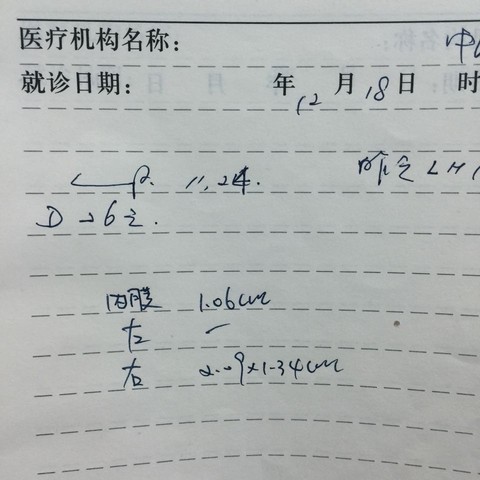 医疗机构名称:
就诊日期: 年 12 月 18 日 时
P. 11.24. 昨 LH
D 26
内膜 1.06cm
左 —
右 2.09×1.34cm